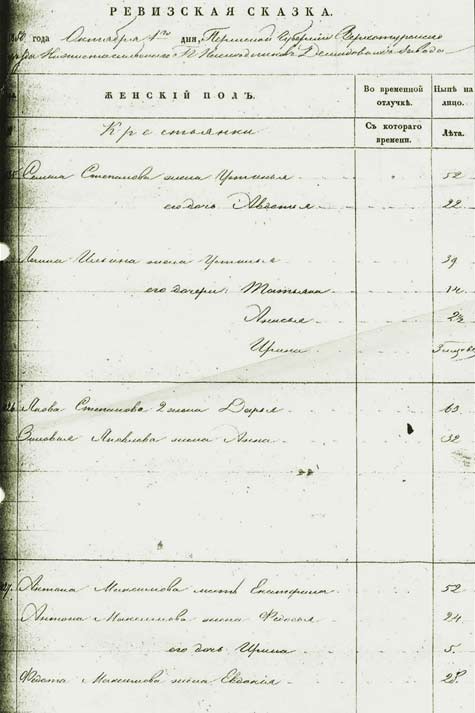 РЕВИЗСКАЯ СКАЗКА.
1850 года Октября 1го дня, Пермской Губернии Верхотурского
уезда Нижнетагильского Гг. Наследников Демидовых завода
ЖЕНСКІЙ ПОЛЪ.
Во временной отлучкѣ.
Нынѣ на лицо.
Крестьянки
Съ котораго времени.
Лѣта.
Степанова жена Устинья 52
его дочь Авдотья 22
Ильина жена Устинья 39
его дочери: Татьяна 14
Анисья
Ирина
Якова Степанова 2 жена Дарья 63
Зиновья Яковлева жена Анна 32
27. Антона Максимова мать Екатерина 52
Антона Максимова жена Федосья 24
его дочь Ирина 5
Федота Максимова жена Евдокія